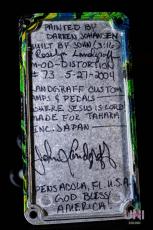 PAINTED BY
DARREN JOHANSEN
BUILT BY JOHN/3:16
Roselyn Landgraff
MOD-DISTORTION
#73 5-27-2004
LANDGRAFF CUSTOM
AMPS & PEDALS
WHERE JESUS IS LORD
MADE FOR TAHARA
INC. JAPAN
John Landgraff
PENSACOLA, FL. U.S.A.
GOD BLESS
AMERICA